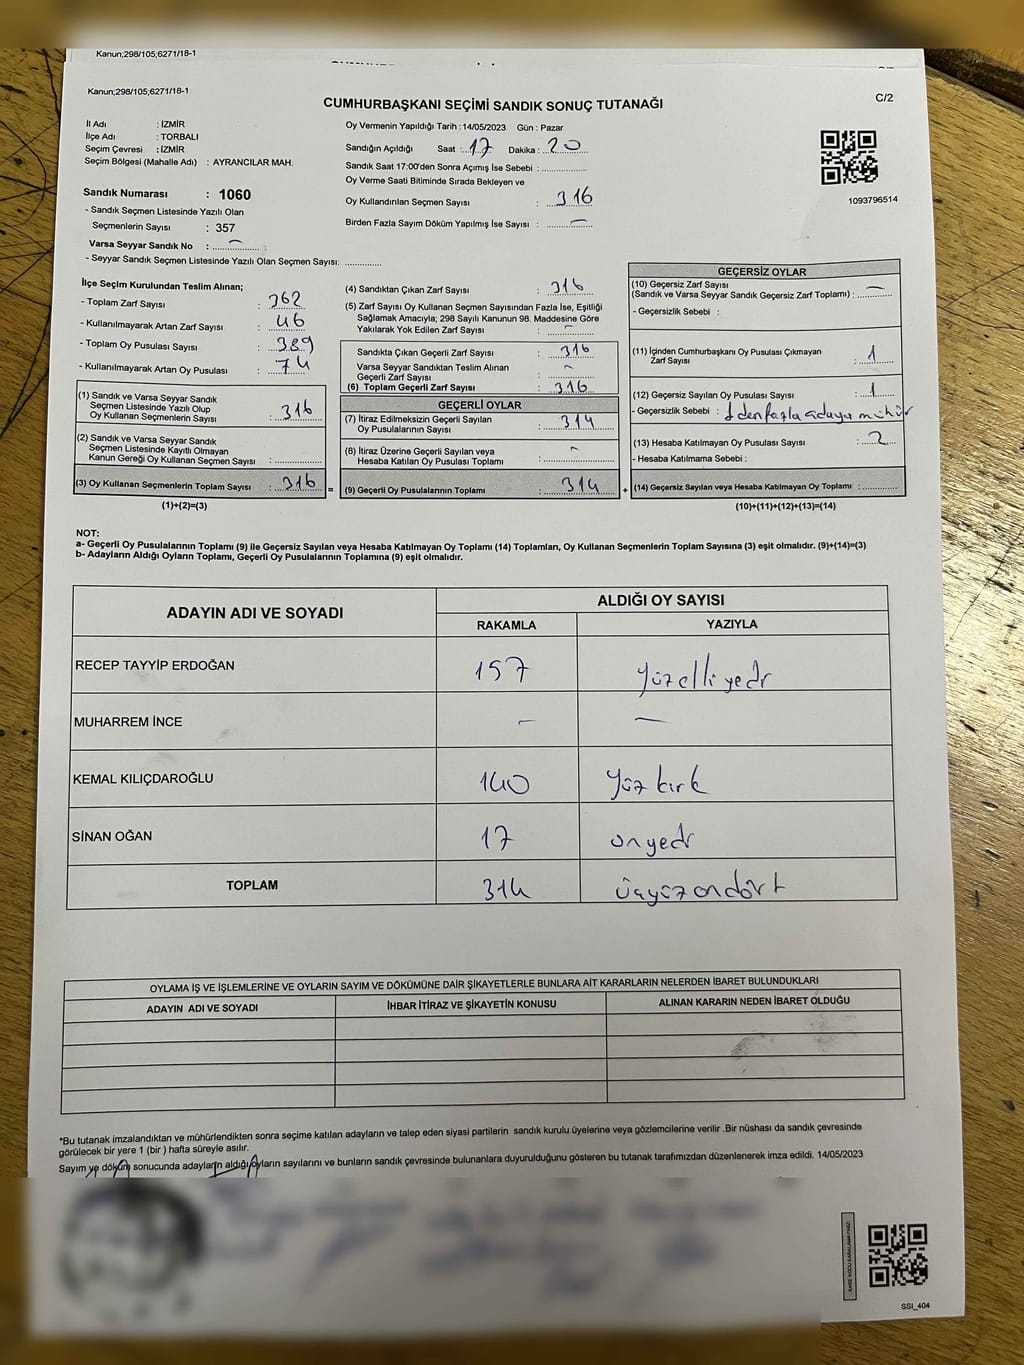 Kanun;298/105;6271/18-1
Kanun;298/105;6271/18-1
CUMHURBAŞKANI SEÇİMİ SANDIK SONUÇ TUTANAĞI
C/2
İl Adı : İZMİR
İlçe Adı : TORBALI
Seçim Çevresi : İZMİR
Seçim Bölgesi (Mahalle Adı) : AYRANCILAR MAH.
Sandık Numarası : 1060
- Sandık Seçmen Listesinde Yazılı Olan
Seçmenlerin Sayısı : 357
Varsa Seyyar Sandık No : –
- Seyyar Sandık Seçmen Listesinde Yazılı Olan Seçmen Sayısı: ............
Oy Vermenin Yapıldığı Tarih : 14/05/2023 Gün : Pazar
Sandığın Açıldığı Saat : 17 Dakika : 20
Sandık Saat 17:00'den Sonra Açımış İse Sebebi : ............
Oy Verme Saati Bitiminde Sırada Bekleyen ve
Oy Kullandırılan Seçmen Sayısı : 316
Birden Fazla Sayım Döküm Yapılmış İse Sayısı : –
1093796514
İlçe Seçim Kurulundan Teslim Alınan;
- Toplam Zarf Sayısı : 362
- Kullanılmayarak Artan Zarf Sayısı : 46
- Toplam Oy Pusulası Sayısı : 389
- Kullanılmayarak Artan Oy Pusulası : 74
(1) Sandık ve Varsa Seyyar Sandık
Seçmen Listesinde Yazılı Olup
Oy Kullanan Seçmenlerin Sayısı : 316
(2) Sandık ve Varsa Seyyar Sandık
Seçmen Listesinde Kayıtlı Olmayan
Kanun Gereği Oy Kullanan Seçmen Sayısı : ............
(3) Oy Kullanan Seçmenlerin Toplam Sayısı : 316 =
(1)+(2)=(3)
(4) Sandıktan Çıkan Zarf Sayısı : 316
(5) Zarf Sayısı Oy Kullanan Seçmen Sayısından Fazla İse, Eşitliği
Sağlamak Amacıyla; 298 Sayılı Kanunun 98. Maddesine Göre
Yakılarak Yok Edilen Zarf Sayısı : –
Sandıkta Çıkan Geçerli Zarf Sayısı : 316
Varsa Seyyar Sandıktan Teslim Alınan
Geçerli Zarf Sayısı : –
(6) Toplam Geçerli Zarf Sayısı : 316
GEÇERLİ OYLAR
(7) İtiraz Edilmeksizin Geçerli Sayılan
Oy Pusulalarının Sayısı : 314
(8) İtiraz Üzerine Geçerli Sayılan veya
Hesaba Katılan Oy Pusulası Toplamı : –
(9) Geçerli Oy Pusulalarının Toplamı : 314 +
GEÇERSİZ OYLAR
(10) Geçersiz Zarf Sayısı
(Sandık ve Varsa Seyyar Sandık Geçersiz Zarf Toplamı) : –
- Geçersizlik Sebebi :
(11) İçinden Cumhurbaşkanı Oy Pusulası Çıkmayan
Zarf Sayısı : 1
(12) Geçersiz Sayılan Oy Pusulası Sayısı : 1
- Geçersizlik Sebebi : 1 den fazla adaya mühür
(13) Hesaba Katılmayan Oy Pusulası Sayısı : 2
- Hesaba Katılmama Sebebi :
(14) Geçersiz Sayılan veya Hesaba Katılmayan Oy Toplamı : ............
(10)+(11)+(12)+(13)=(14)
NOT:
a- Geçerli Oy Pusulalarının Toplamı (9) ile Geçersiz Sayılan veya Hesaba Katılmayan Oy Toplamı (14) Toplamları, Oy Kullanan Seçmenlerin Toplam Sayısına (3) eşit olmalıdır. (9)+(14)=(3)
b- Adayların Aldığı Oyların Toplamı, Geçerli Oy Pusulalarının Toplamına (9) eşit olmalıdır.
ADAYIN ADI VE SOYADI
ALDIĞI OY SAYISI
RAKAMLA YAZIYLA
RECEP TAYYİP ERDOĞAN 157 yüzelliyedi
MUHARREM İNCE – –
KEMAL KILIÇDAROĞLU 140 yüz kırk
SİNAN OĞAN 17 onyedi
TOPLAM 314 üçyüzondört
OYLAMA İŞ VE İŞLEMLERİNE VE OYLARIN SAYIM VE DÖKÜMÜNE DAİR ŞİKAYETLERLE BUNLARA AİT KARARLARIN NELERDEN İBARET BULUNDUKLARI
ADAYIN ADI VE SOYADI İHBAR İTİRAZ VE ŞİKAYETİN KONUSU ALINAN KARARIN NEDEN İBARET OLDUĞU
*Bu tutanak imzalandıktan ve mühürlendikten sonra seçime katılan adayların ve talep eden siyasi partilerin sandık kurulu üyelerine veya gözlemcilerine verilir .Bir nüshası da sandık çevresinde
görülecek bir yere 1 (bir ) hafta süreyle asılır.
Sayım ve döküm sonucunda adayların aldığı oyların sayılarını ve bunların sandık çevresinde bulunanlara duyurulduğunu gösteren bu tutanak tarafımızdan düzenlenerek imza edildi. 14/05/2023
SSI_404